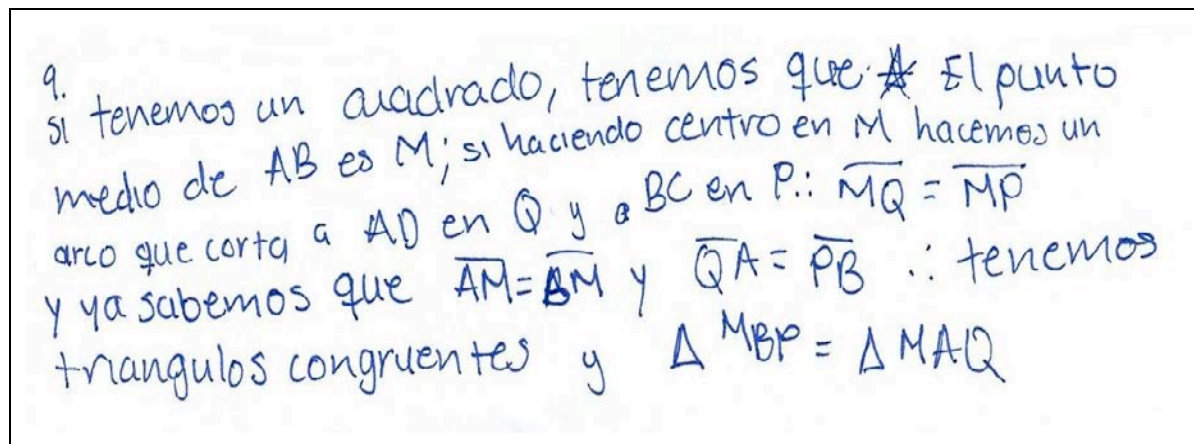 9.
si tenemos un cuadrado, tenemos que El punto
medio de AB es M; si haciendo centro en M hacemos un
arco que corta a AD en Q y a BC en P ∴ MQ = MP
y ya sabemos que AM = BM y QA = PB ∴ tenemos
triangulos congruentes y Δ MBP = Δ MAQ